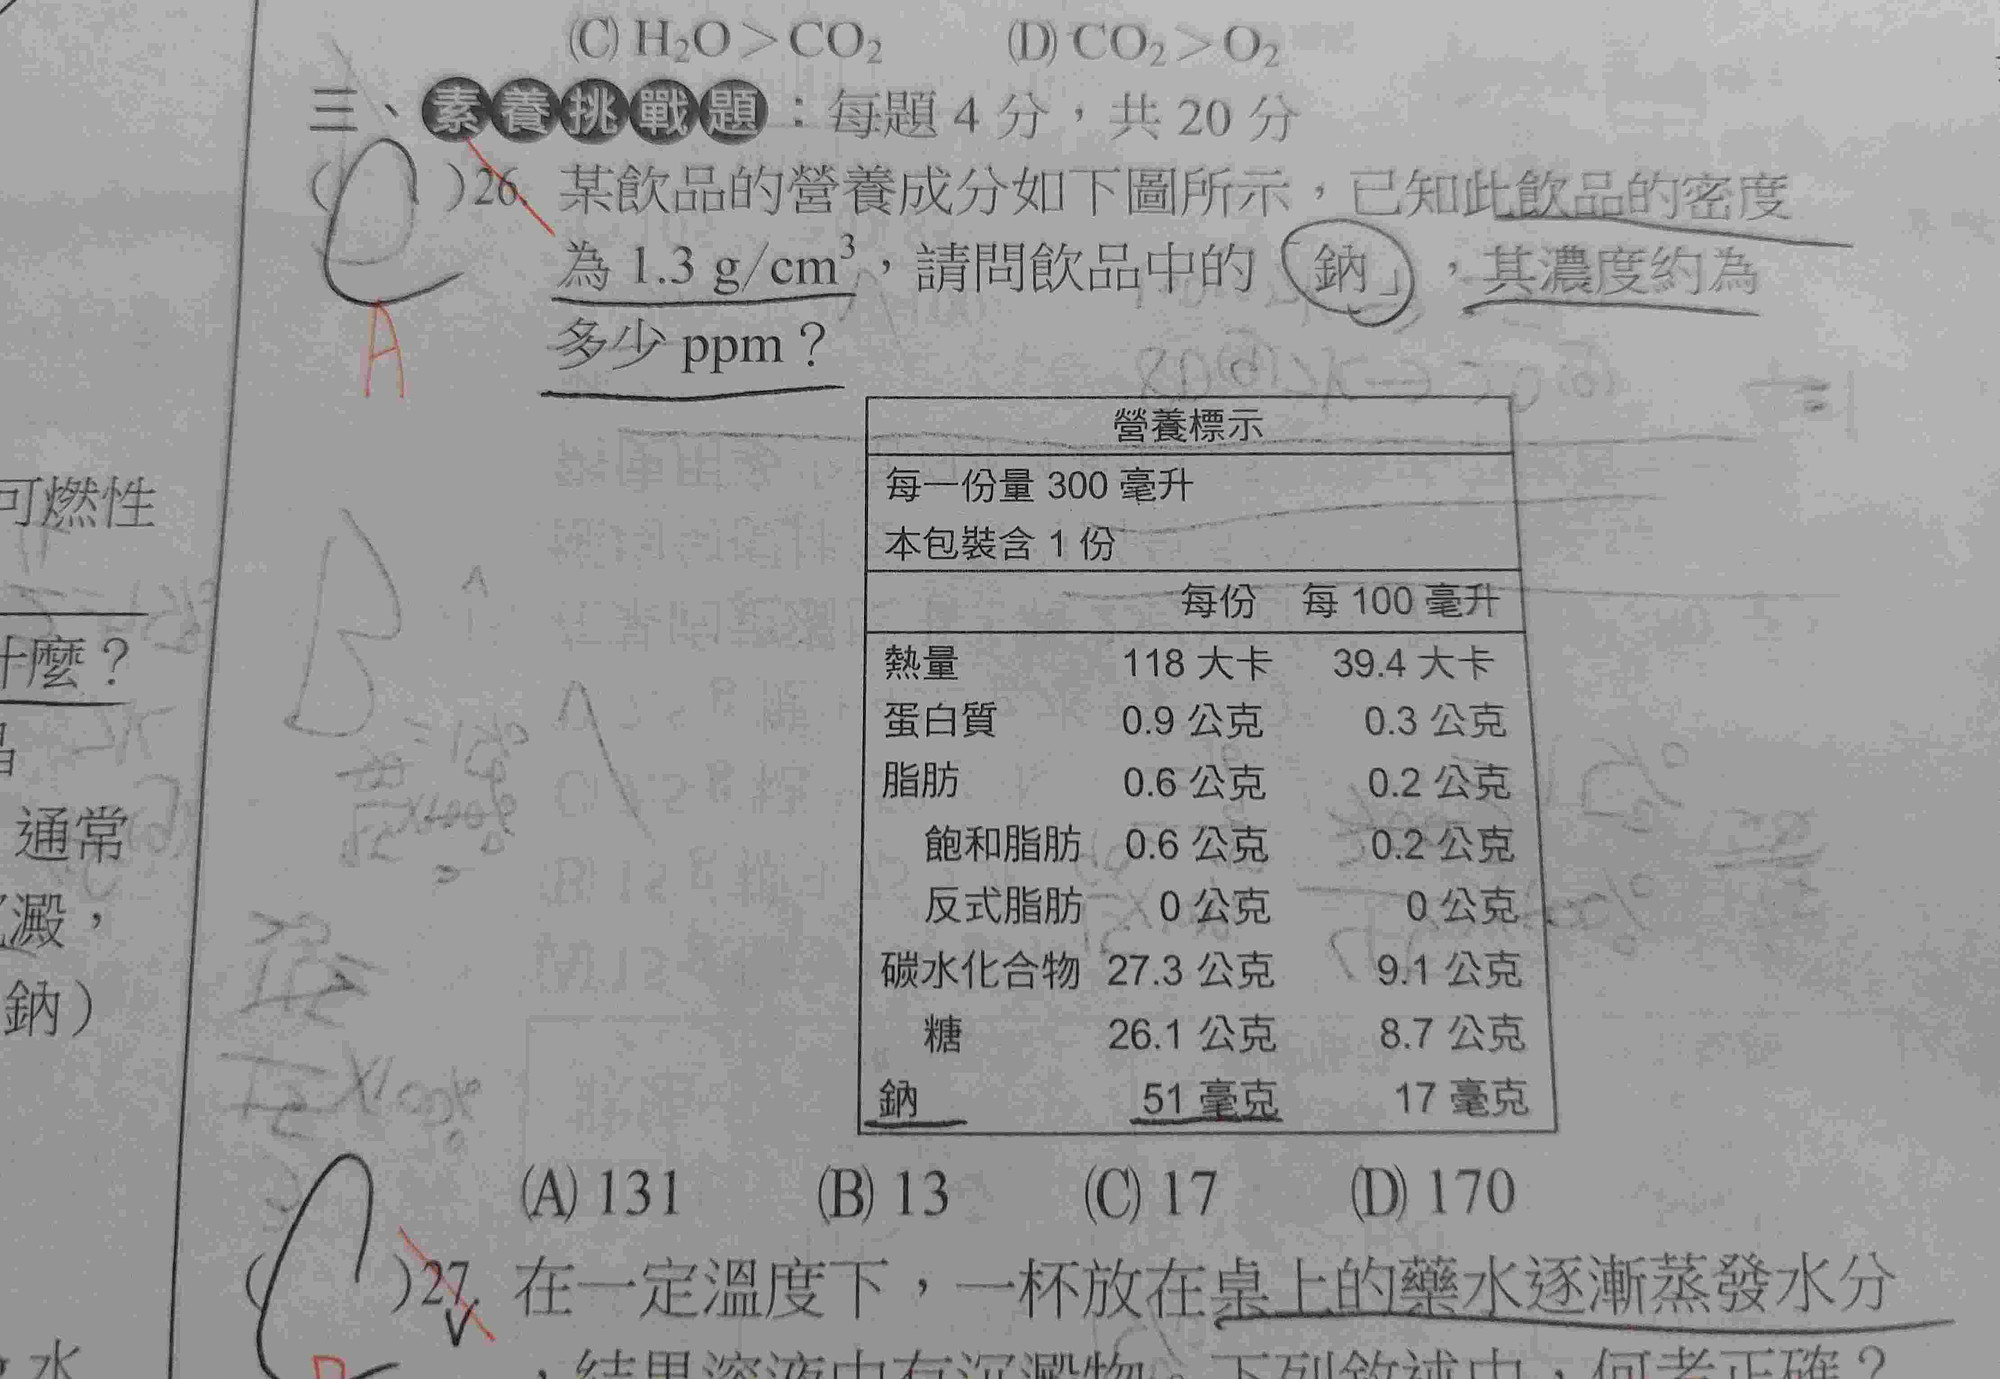 (C) H₂O＞CO₂ (D) CO₂＞O₂
三、素養挑戰題：每題 4 分，共 20 分
( C )26. 某飲品的營養成分如下圖所示，已知此飲品的密度
為 1.3 g/cm³，請問飲品中的「鈉」，其濃度約為
A
多少 ppm？
營養標示
每一份量 300 毫升
本包裝含 1 份
每份 每 100 毫升
熱量 118 大卡 39.4 大卡
蛋白質 0.9 公克 0.3 公克
脂肪 0.6 公克 0.2 公克
飽和脂肪 0.6 公克 0.2 公克
反式脂肪 0 公克 0 公克
碳水化合物 27.3 公克 9.1 公克
糖 26.1 公克 8.7 公克
鈉 51 毫克 17 毫克
(A) 131 (B) 13 (C) 17 (D) 170
( C )27. 在一定溫度下，一杯放在桌上的藥水逐漸蒸發水分
，結果溶液中有沉澱物。下列敘述中，何者正確？
可燃性
什麼？
通常
澱，
鈉）
水
B